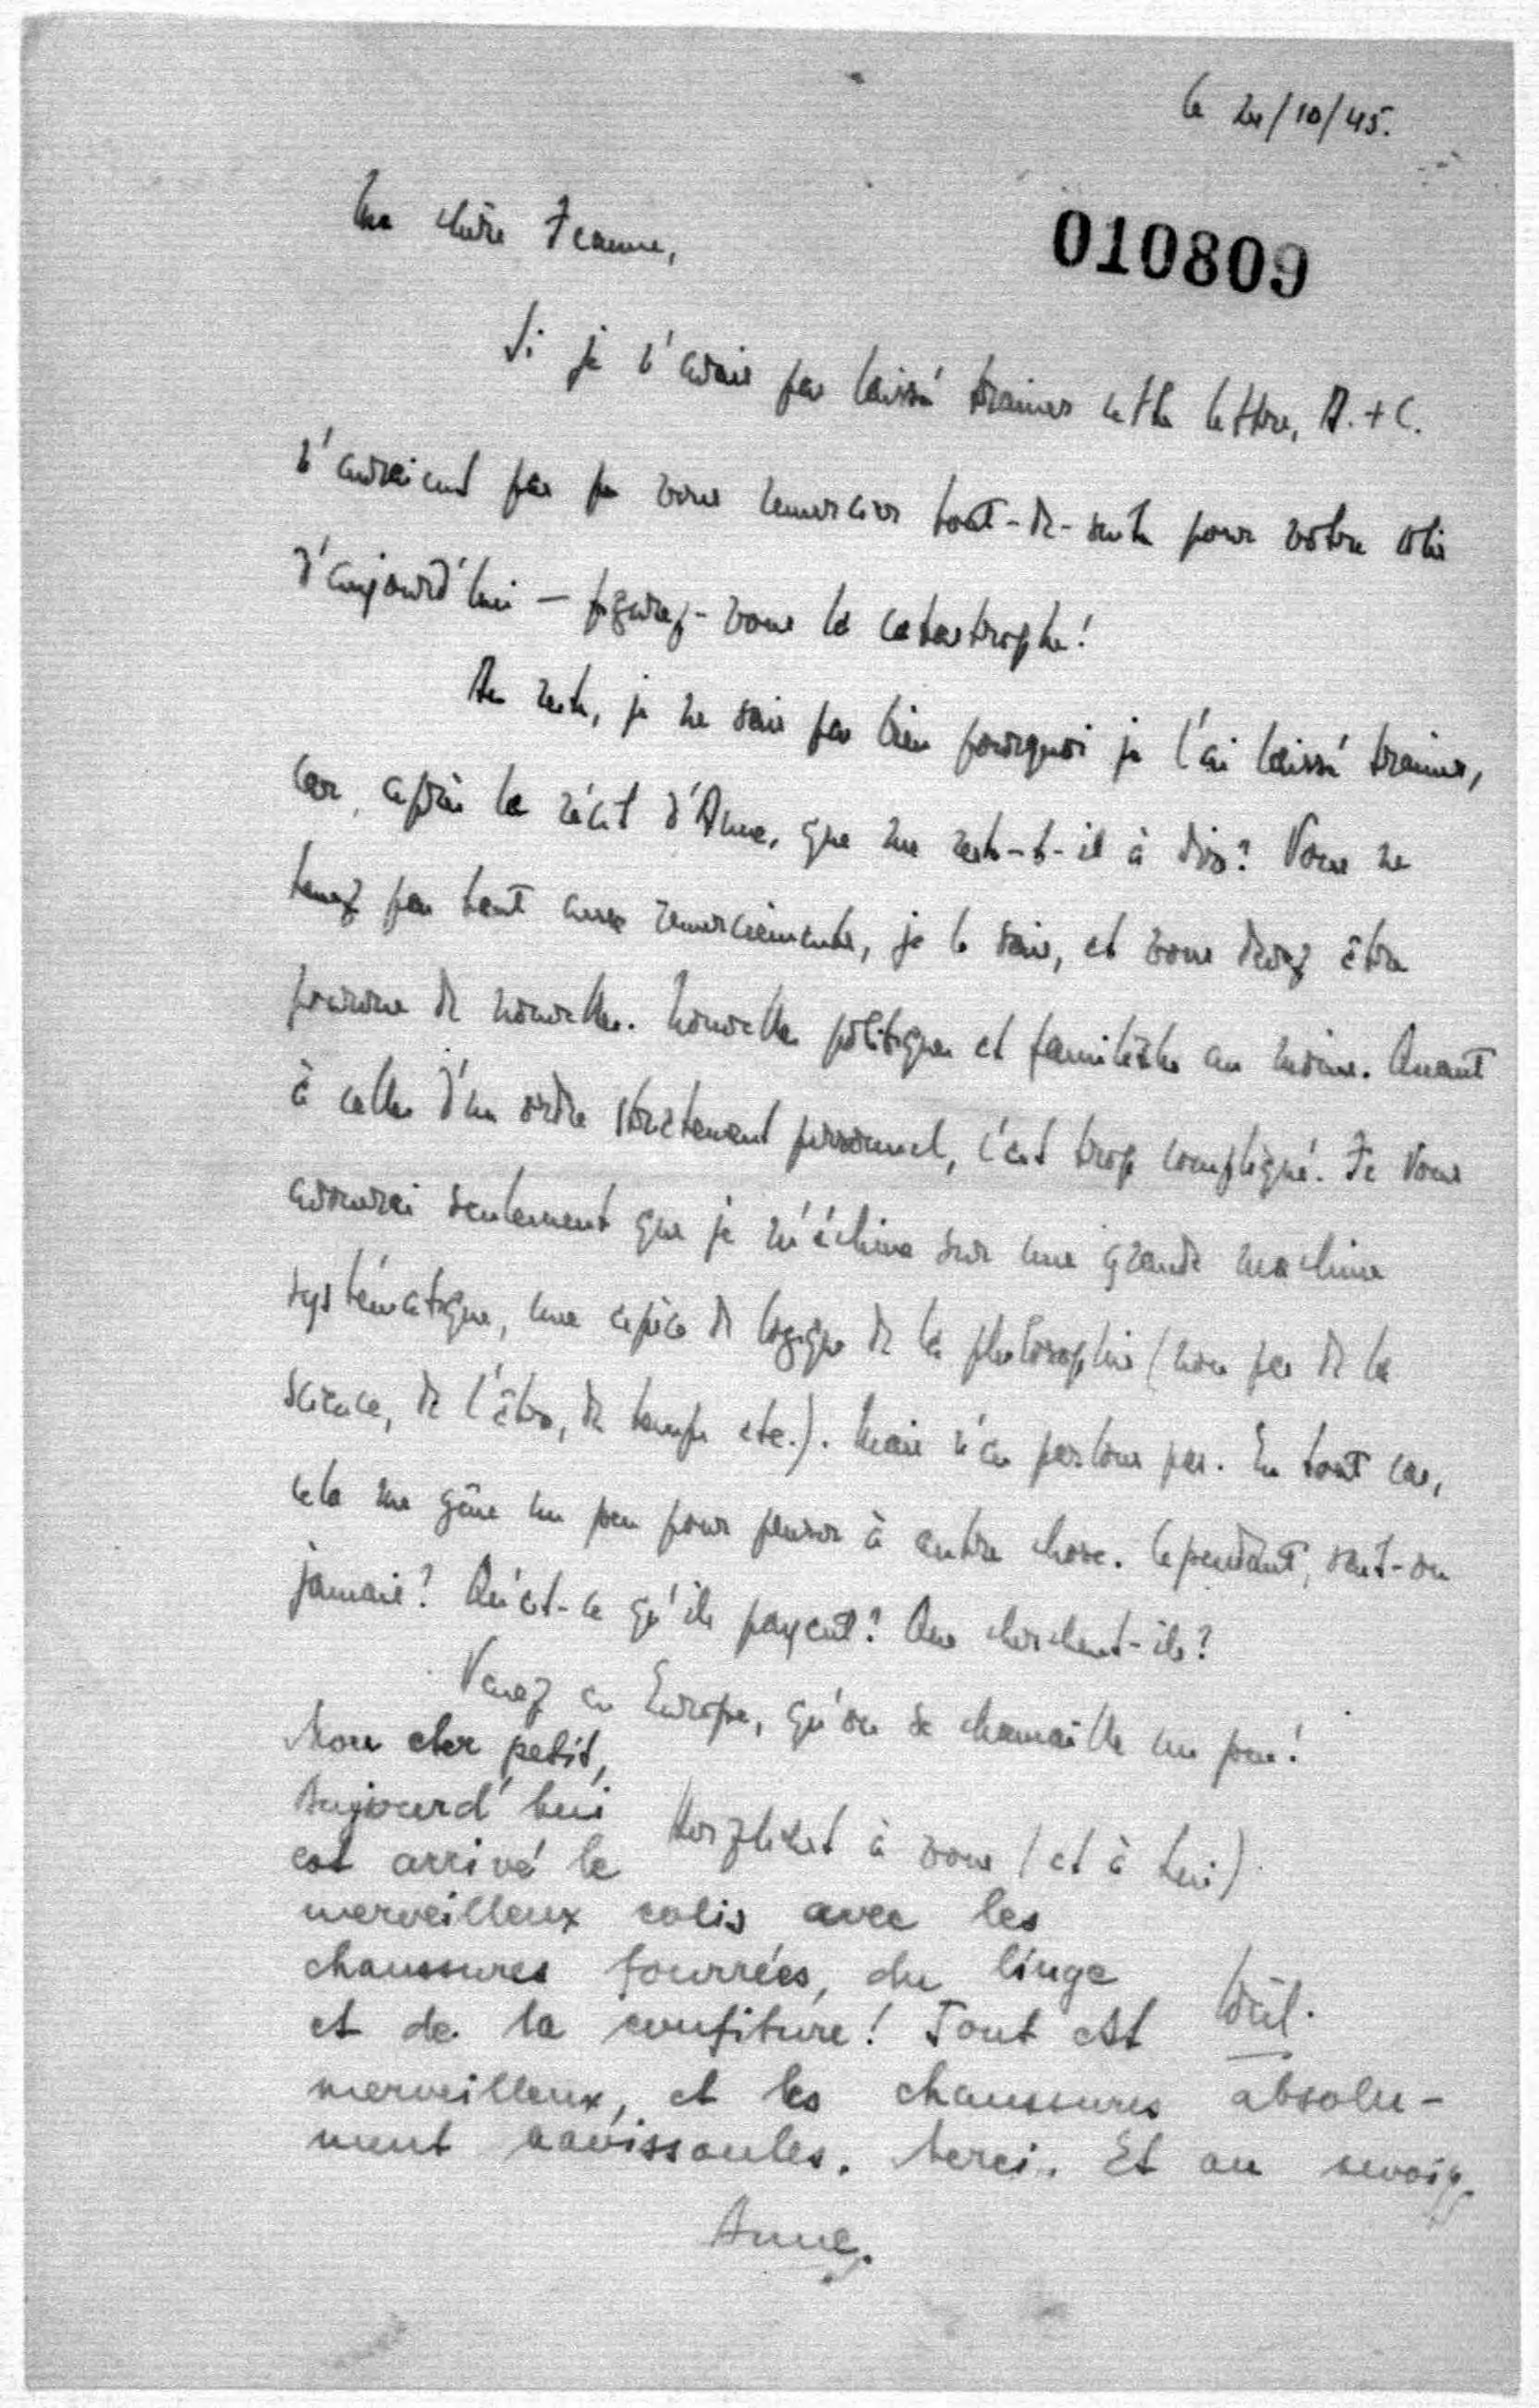 le 21/10/45.
010809
Ma chère Jeanne,
Si je n'avais pas laissé trainer cette lettre, A. + C.
n'auraient pas pu vous remercier tout-de-suite pour votre colis
d'aujourd'hui — figurez-vous la catastrophe!
Au reste, je ne sais pas bien pourquoi je l'ai laissé trainer,
car, après le récit d'Anne, que me reste-t-il à dire? Vous ne
tenez pas tant aux remerciements, je le sais, et vous devez être
pourvue de nouvelles. Nouvelles politiques et familiales au moins. Quant
à celles d'un ordre strictement personnel, c'est trop compliqué. Je vous
avouerai seulement que je m'échine sur une grande machine
systématique, une espèce de logique de la philosophie (non pas de la
science, de l'être, du temps etc.). Mais n'en parlons pas. En tout cas,
cela me gêne un peu pour penser à autre chose. Cependant, sait-on
jamais? Qu'est-ce qu'ils payent? Que cherchent-ils?
Venez en Europe, qu'on se chamaille un peu!
Herzlichst à vous (et à lui).
Weil.
Mon cher petit,
Aujourd'hui
est arrivé le
merveilleux colis avec les
chaussures fourrées, du linge
et de la confiture! Tout est
merveilleux, et les chaussures absolu-
ment ravissantes. Merci. Et au revoir
Anne.